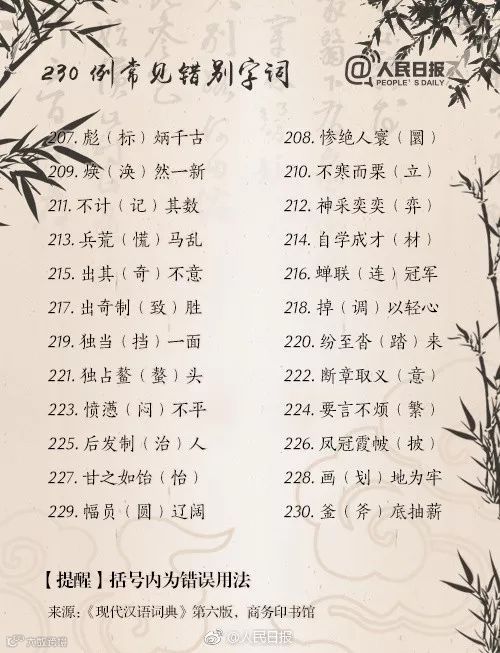 230 例常见错别字词
@人民日报
PEOPLE'S DAILY
207. 彪（标）炳千古 208. 惨绝人寰（圜）
209. 焕（涣）然一新 210. 不寒而栗（立）
211. 不计（记）其数 212. 神采奕奕（弈）
213. 兵荒（慌）马乱 214. 自学成才（材）
215. 出其（奇）不意 216. 蝉联（连）冠军
217. 出奇制（致）胜 218. 掉（调）以轻心
219. 独当（挡）一面 220. 纷至沓（踏）来
221. 独占鳌（螯）头 222. 断章取义（意）
223. 愤懑（闷）不平 224. 要言不烦（繁）
225. 后发制（治）人 226. 凤冠霞帔（披）
227. 甘之如饴（怡） 228. 画（划）地为牢
229. 幅员（圆）辽阔 230. 釜（斧）底抽薪
【提醒】括号内为错误用法
来源：《现代汉语词典》第六版，商务印书馆
@人民日报